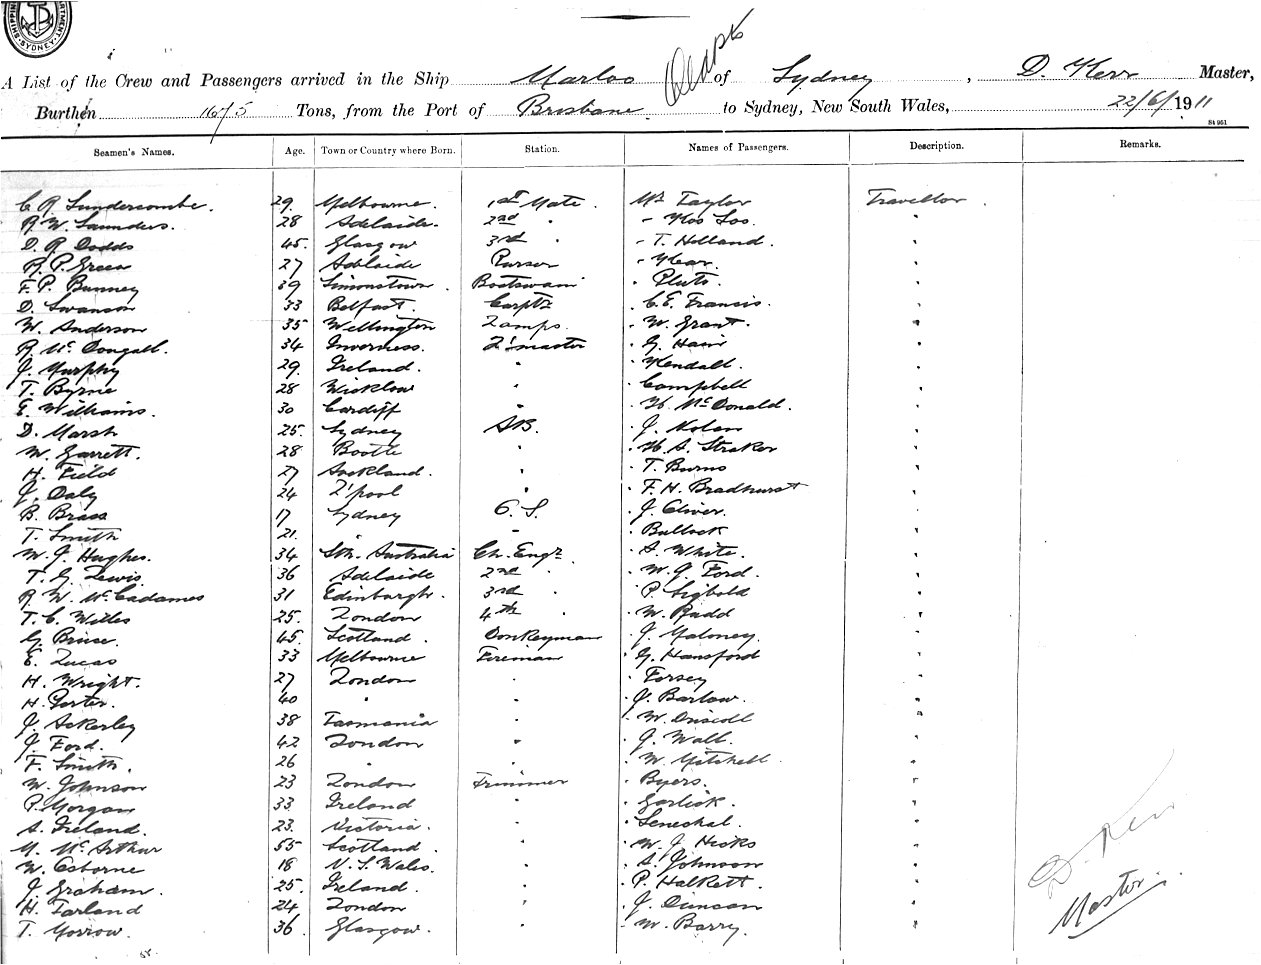 SHIPPING DEPARTMENT. SYDNEY
A List of the Crew and Passengers arrived in the Ship Marloo of Sydney, D. Kerr Master,
Burthen 1675 Tons, from the Port of Brisbane to Sydney, New South Wales, 22/6/1911
St 951
Seamen's Names. Age. Town or Country where Born. Station. Names of Passengers. Description. Remarks.
C R Sundercombe. 29. Melbourne. 1st Mate. Mr Taylor Traveller
R. W. Saunders. 28 Adelaide. 2nd " - "
D. R. Dodds 45. Glasgow 3rd " - T. Holland. "
R. P. Green 27 Adelaide Purser - "
F. P. Bunney 39 Simonstown. Boatswain " Pluto. "
D. Swanson 33 Belfast. Carptr " C. E. Francis. "
W. Anderson 35 Wellington Lamps. " W. Grant. "
R. McDougall. 34 Inverness. L'master " G. Hain "
J. Murphy 29. Ireland. " " Kendall. "
T. Byrne 28 Wicklow " " Campbell "
E. Williams. 30 Cardiff " " H. McDonald. "
D. Marsh 25. Sydney AB. " J. Nolan "
W. Garrett. 28 Bootle " " H. A. Straker "
H. Field 27 Auckland. " " T. Burns "
J. Daly 24 L'pool " " F. H. Bradhurst "
B. Brass 17 Sydney O. S. " J. Oliver. "
T. Smith 21. " " " Bullock "
W. J. Hughes. 34 Sth. Australia Ch. Engr. " A. White. "
T. G. Lewis 36 Adelaide 2nd " " W. G. Ford. "
R. W. McCadames 31 Edinburgh. 3rd " " P. Sigbold "
T. C. Willes 25. London 4th " " W. Rudd "
G. Bruce. 45. Scotland. Donkeyman " J. Maloney. "
E. Lucas 33 Melbourne Fireman " G. Hansford "
H. Wright. 27 London " " Forsey "
H. Porter. 40 " " " J. Barlow. "
J. Ackerley 38 Tasmania " " W. Driscoll "
J. Ford. 42 London " " J. Wall. "
F. Smith. 26 " " " W. Mitchell "
W. Johnson 23 London Trimmer " Byers. "
P. Morgan 33 Ireland " " Garlick. "
A. Ireland. 23. Victoria. " " Seneschal. "
M. McArthur 55 Scotland. " " W. J. Hicks "
W. Osborne 18 N. S. Wales. " " A. Johnson "
J. Graham. 25. Ireland. " " P. Halkett. "
H. Farland 24 London " " J. Duncan "
T. Morrow. 36. Glasgow. " " W. Barry. "
D. Kerr
Master.